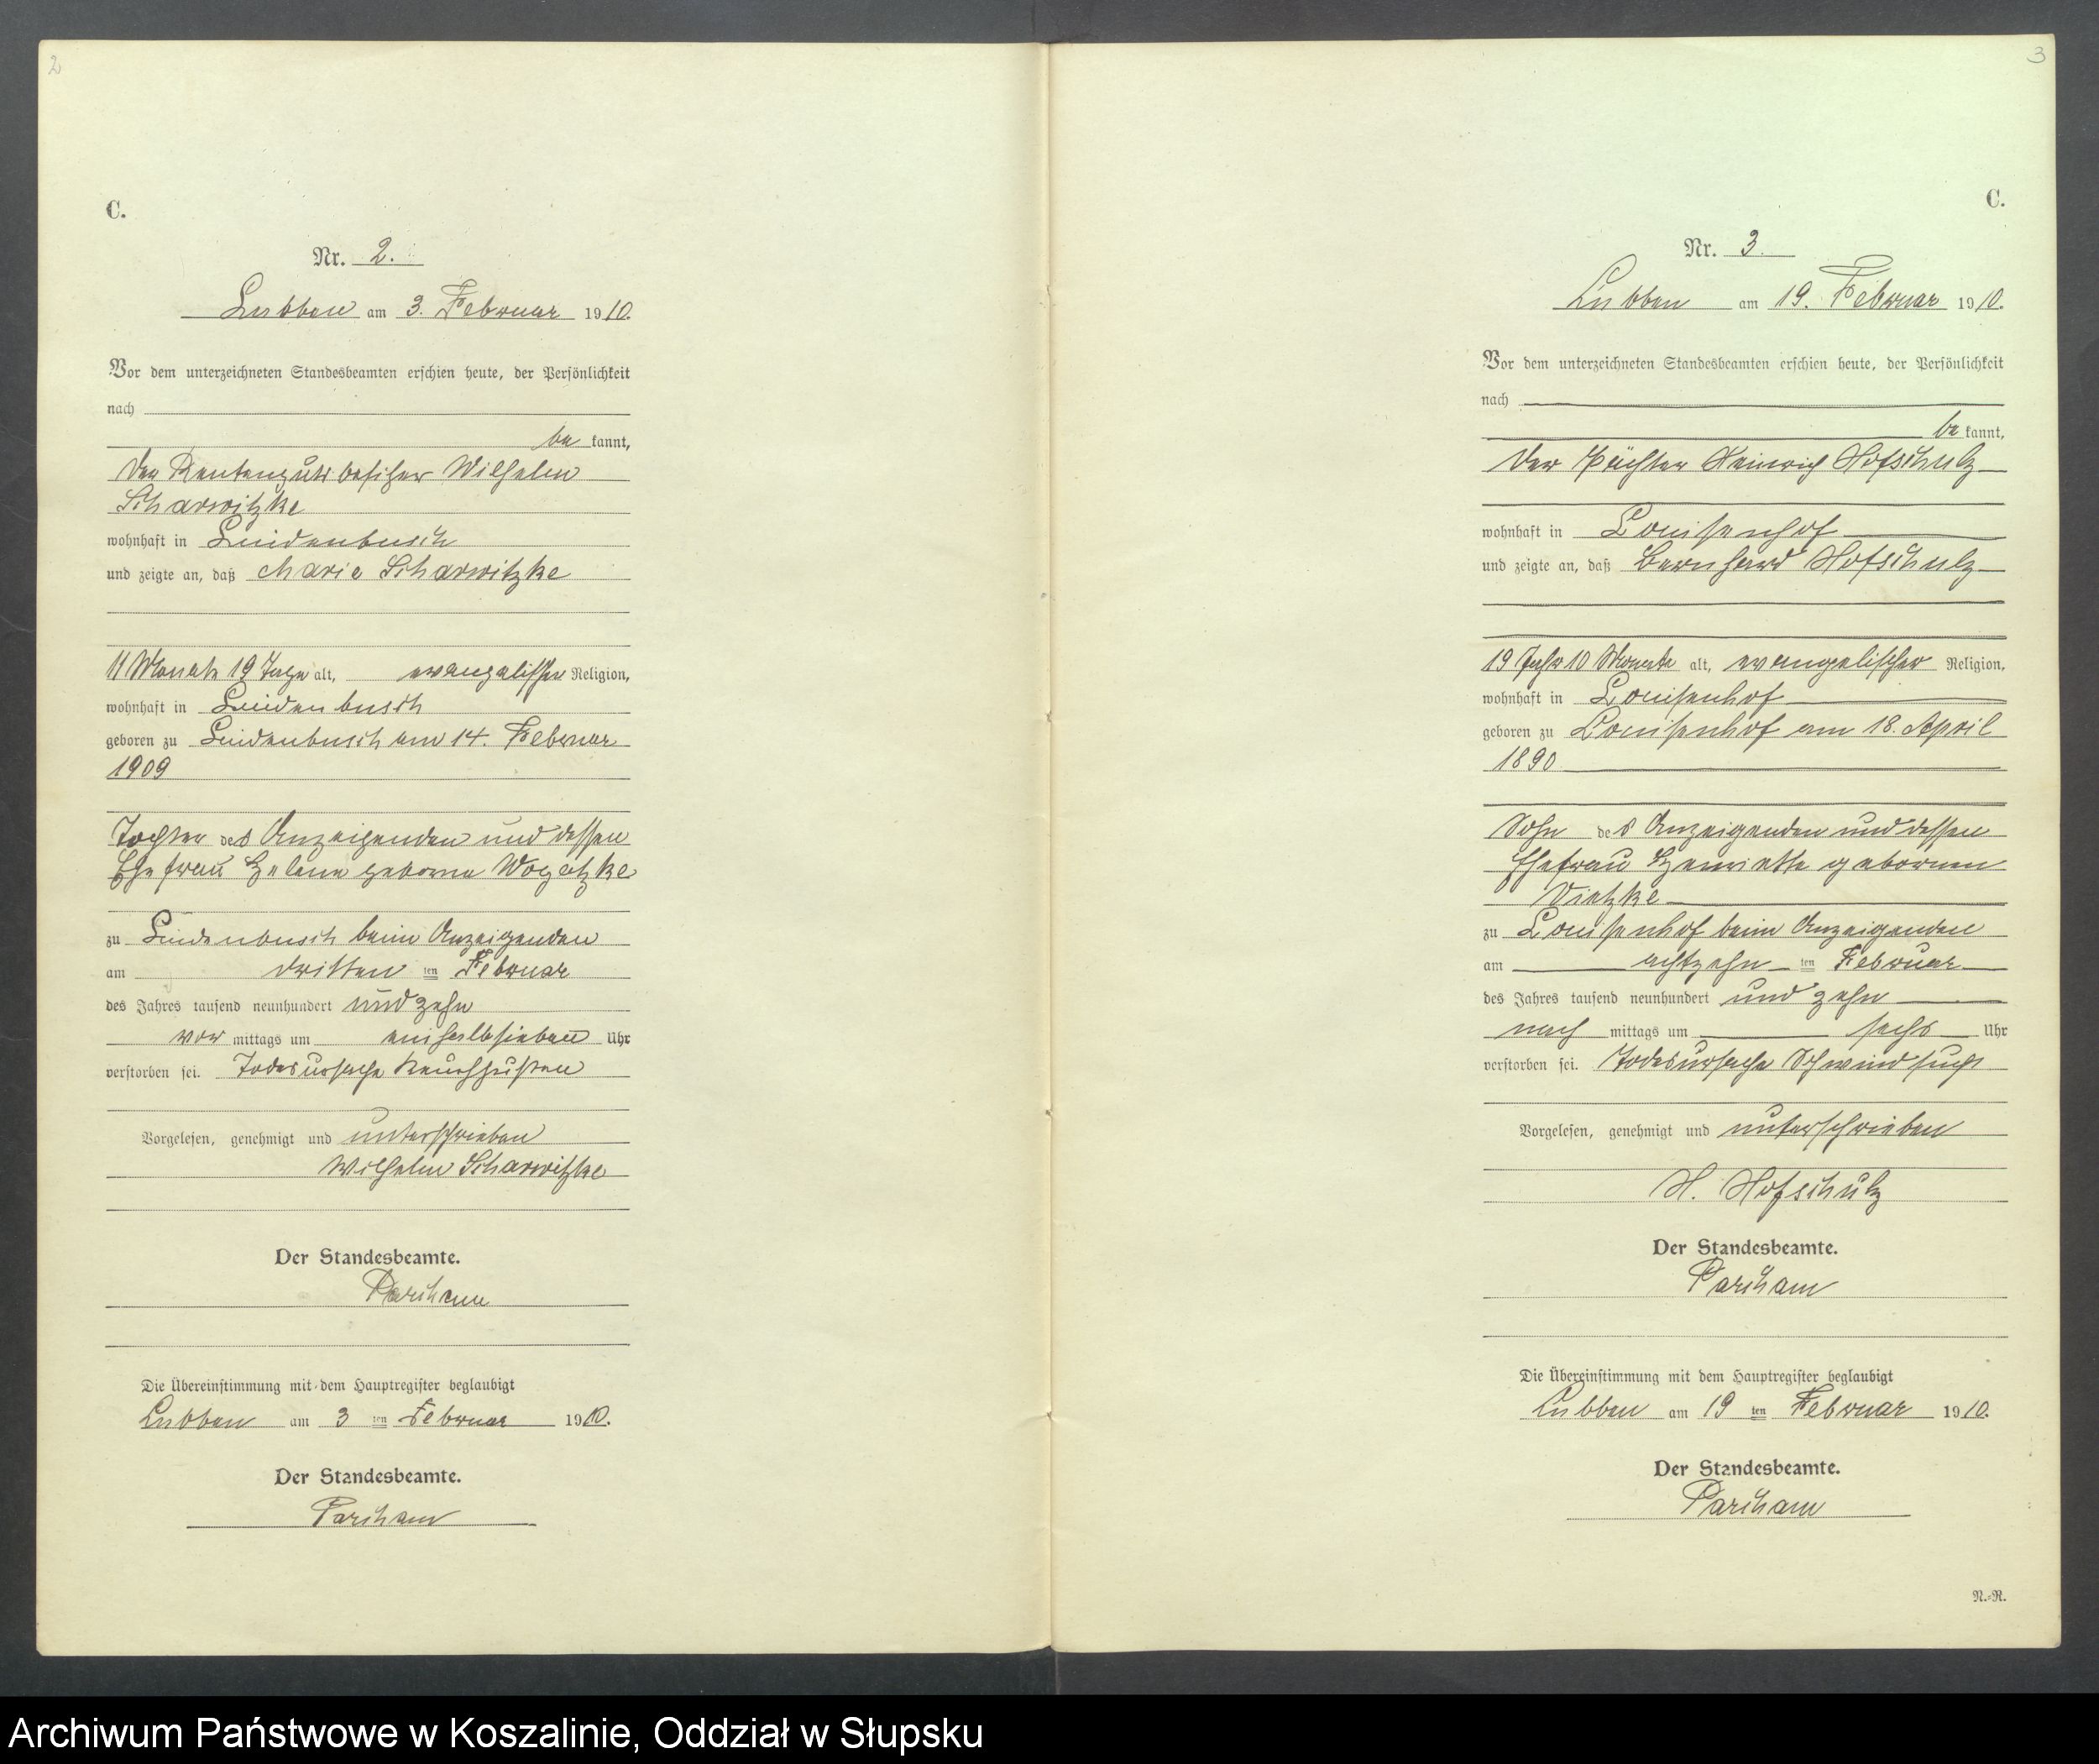 2
C.
Nr. 2.
Lubben am 3. Februar 1910.
Vor dem unterzeichneten Standesbeamten erschien heute, der Persönlichkeit
nach
be kannt,
der Rentengutsbesitzer Wilhelm
Scharwitzke
wohnhaft in Lindenbusch
und zeigte an, daß Marie Scharwitzke
11 Monate 19 Tage alt, evangelischer Religion,
wohnhaft in Lindenbusch
geboren zu Lindenbusch am 14. Februar
1909
Tochter des Anzeigenden und dessen
Ehefrau Helene geborne Wogatzke
zu Lindenbusch beim Anzeigenden
am dritten ten Februar
des Jahres tausend neunhundert und zehn
vor mittags um einhalbsieben Uhr
verstorben sei. Todesursache Keuchhusten
Vorgelesen, genehmigt und unterschrieben
Wilhelm Scharwitzke
Der Standesbeamte.
Parcham
Die Übereinstimmung mit dem Hauptregister beglaubigt
Lubben am 3 ten Februar 1910.
Der Standesbeamte.
Parcham
3
C.
Nr. 3
Lubben am 19. Februar 1910.
Vor dem unterzeichneten Standesbeamten erschien heute, der Persönlichkeit
nach
be kannt,
der Pächter Heinrich Hofschulz
wohnhaft in Louisenhof
und zeigte an, daß Bernhard Hofschulz
19 Jahr 10 Monate alt, evangelischer Religion,
wohnhaft in Louisenhof
geboren zu Louisenhof am 18. April
1890
Sohn des Anzeigenden und dessen
Ehefrau Henriette gebornen
Vietzke
zu Louisenhof beim Anzeigenden
am achtzehn ten Februar
des Jahres tausend neunhundert und zehn
nach mittags um sechs Uhr
verstorben sei. Todesursache Schwindsucht
Vorgelesen, genehmigt und unterschrieben
H. Hofschulz
Der Standesbeamte.
Parcham
Die Übereinstimmung mit dem Hauptregister beglaubigt
Lubben am 19 ten Februar 1910.
Der Standesbeamte.
Parcham
N.-R.
Archiwum Państwowe w Koszalinie, Oddział w Słupsku